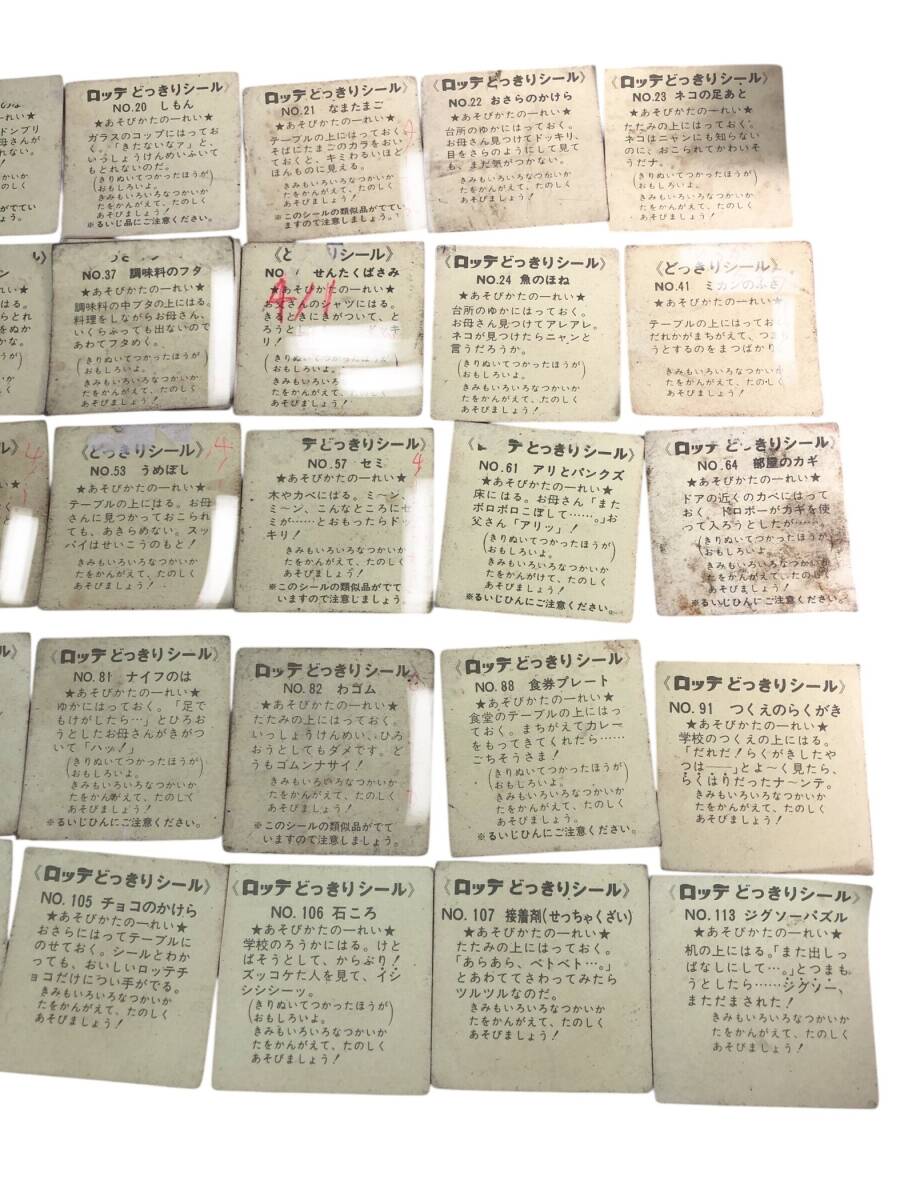 《ロッテ どっきりシール》
NO.20 しもん
★あそびかたの一れい★
ガラスのコップにはってお
く。「きたないなァ」と、
いっしょうけんめいふいて
もとれないのだ。
(きりぬいてつかったほうが
おもしろいよ。)
きみもいろいろなつかいか
たをかんがえて、たのしく
あそびましょう!
※るいじ品にご注意ください。
《ロッテ どっきりシール》
NO.21 なまたまご
★あそびかたの一れい★
テーブルの上にはっておく。
そばにたまごのカラをおい
ておくと、キミわるいほど
ほんものに見える。
きみもいろいろなつかいか
たをかんがえて、たのしく
あそびましょう!
※このシールの類似品がでてい
ますので注意しましょう。
《ロッテ どっきりシール》
NO.22 おさらのかけら
★あそびかたの一れい★
台所のゆかにはっておく。
お母さん見つけてドッキリ、
目をさらのようにして見て
も、まだ気がつかない。
きみもいろいろなつかいか
たをかんがえて、たのしく
あそびましょう!
《ロッテ どっきりシール》
NO.23 ネコの足あと
★あそびかたの一れい★
たたみの上にはっておく。
ネコはニャンにも知らない
のに、おこられてかわいそ
うだナ。
(きりぬいてつかったほうが
おもしろいよ。)
きみもいろいろなつかいか
たをかんがえて、たのしく
あそびましょう!
NO.37 調味料のフタ
★あそびかたの一れい★
調味料の中ブタの上にはる。
料理をしながらお母さん、
いくらふっても出ないので
あわてフタめく。
(きりぬいてつかったほうが
おもしろいよ。)
きみもいろいろなつかいか
たをかんがえて、たのしく
あそびましょう!
シール》
NO. せんたくばさみ
★あそびかたの一れい★
お父さんのシャツにはる。
きるときにきがついて、と
ろうと
リ!
(きりぬいてつかったほうが
おもしろいよ。)
きみもいろいろ
たをかんがえて、たのしく
あそびましょう!
《ロッテ どっきりシール》
NO.24 魚のほね
★あそびかたの一れい★
台所のゆかにはっておく。
お母さん見つけてアレアレ。
ネコが見つけたらニャンと
言うだろうか。
(きりぬいてつかったほうが
おもしろいよ。)
きみもいろいろなつかいか
たをかんがえて、たのしく
あそびましょう!
《どっきりシール》
NO.41 ミカンのふさ
★あそびかたの一れい★
テーブルの上にはってお
だれかがまちがえて、つま
うとするのをまつばかり
きみもいろいろなつかいか
たをかんがえて、たのしく
あそびましょう!
《どっきりシール》
NO.53 うめぼし
★あそびかたの一れい★
テーブルの上にはる。お母
さんに見つかっておこられ
ても、あきらめない。スッ
パイはせいこうのもと!
きみもいろいろなつかいか
たをかんがえて、たのしく
あそびましょう!
テどっきりシール》
NO.57 セミ
★あそびかたの一れい★
木やカベにはる。ミ〜ン、
ミ〜ン、こんなところにセ
ミが……とおもったらドッ
キリ!
きみもいろいろなつかいか
たをかんがえて、たのしく
あそびましょう!
※このシールの類似品がでて
いますので注意しましょう。
テ どっきりシール》
NO.61 アリとパンクズ
★あそびかたの一れい★
床にはる。お母さん「また
ボロボロこぼして……。」お
父さん「アリッ」!
(きりぬいてつかったほうが
おもしろいよ。)
きみもいろいろなつかいか
たをかんがけて、たのしく
あそびましょう!
※るいじひんにご注意ください。
《ロッテ どっきりシール》
NO.64 部屋のカギ
★あそびかたの一れい★
ドアの近くのカベにはって
おく。ドロボーがカギを使
って入ろうとしたが……
(きりぬいてつかったほうが
おもしろいよ。)
きみもいろいろなつかいか
たをかんがえて、たのしく
あそびましょう!
※るいじひんにご注意ください。
《ロッテ どっきりシール》
NO.81 ナイフのは
★あそびかたの一れい★
ゆかにはっておく。「足で
もけがしたら…」とひろお
うとしたお母さんがきがつ
いて「ハッ!」
(きりぬいてつかったほうが
おもしろいよ。)
きみもいろいろなつかいか
たをかんがえて、たのしく
あそびましょう!
※るいじひんにご注意ください。
《ロッテ どっきりシール》
NO.82 わゴム
★あそびかたの一れい★
たたみの上にはっておく。
いっしょうけんめい、ひろ
おうとしてもダメです。ど
うもゴムンナサイ!
きみもいろいろなつかいか
たをかんがえて、たのしく
あそびましょう!
※このシールの類似品がでて
いますので注意しましょう。
《ロッテ どっきりシール》
NO.88 食券プレート
★あそびかたの一れい★
食堂のテーブルの上にはっ
ておく。まちがえてカレー
をもってきてくれたら……
ごちそうさま!
(きりぬいてつかったほうが
おもしろいよ。)
きみもいろいろなつかいか
たをかんがえて、たのしく
あそびましょう!
※るいじひんにご注意ください。
《ロッテ どっきりシール》
NO.91 つくえのらくがき
★あそびかたの一れい★
学校のつくえの上にはる。
「だれだ!らくがきしたや
つは――」とよ〜く見たら、
らくはりだったナ〜ンテ。
きみもいろいろなつかいか
たをかんがえて、たのしく
あそびましょう!
《ロッテ どっきりシール》
NO.105 チョコのかけら
★あそびかたの一れい★
おさらにはってテーブルに
のせておく。シールとわか
っても、おいしいロッテチ
ョコだけについ手がでる。
きみもいろいろなつかいか
たをかんがえて、たのしく
あそびましょう!
《ロッテ どっきりシール》
NO.106 石ころ
★あそびかたの一れい★
学校のろうかにはる。けと
ばそうとして、からぶり!
ズッコケた人を見て、イシ
シシシーッ。
(きりぬいてつかったほうが
おもしろいよ。)
きみもいろいろなつかいか
たをかんがえて、たのしく
あそびましょう!
《ロッテ どっきりシール》
NO.107 接着剤(せっちゃくざい)
★あそびかたの一れい★
たたみの上にはっておく。
「あらあら、ベトベト…。」
とあわててさわってみたら
ツルツルなのだ。
(きりぬいてつかったほうが
おもしろいよ。)
きみもいろいろなつかいか
たをかんがえて、たのしく
あそびましょう!
《ロッテ どっきりシール》
NO.113 ジグソーパズル
★あそびかたの一れい★
机の上にはる。「また出しっ
ぱなしにして…。」とつまも
うとしたら……ジグソー、
まただまされた!
きみもいろいろなつかいか
たをかんがえて、たのしく
あそびましょう!